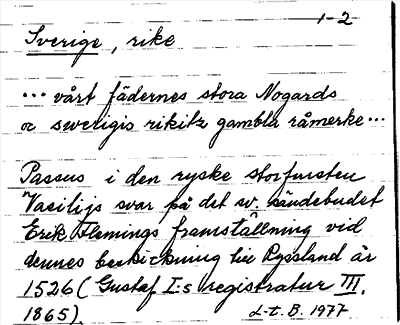 1-2
Sverige, rike
... vårt fädernes stora Nogards
oc swerigis rikitz gambla råmerke ...
Passus i den ryske storfursten
Vasilijs svar på det sv. sändebudet
Erik Flemings framställning vid
dennes beskickning till Ryssland år
1526 (Gustaf I:s registratur III,
1865).
L-t. B. 1977